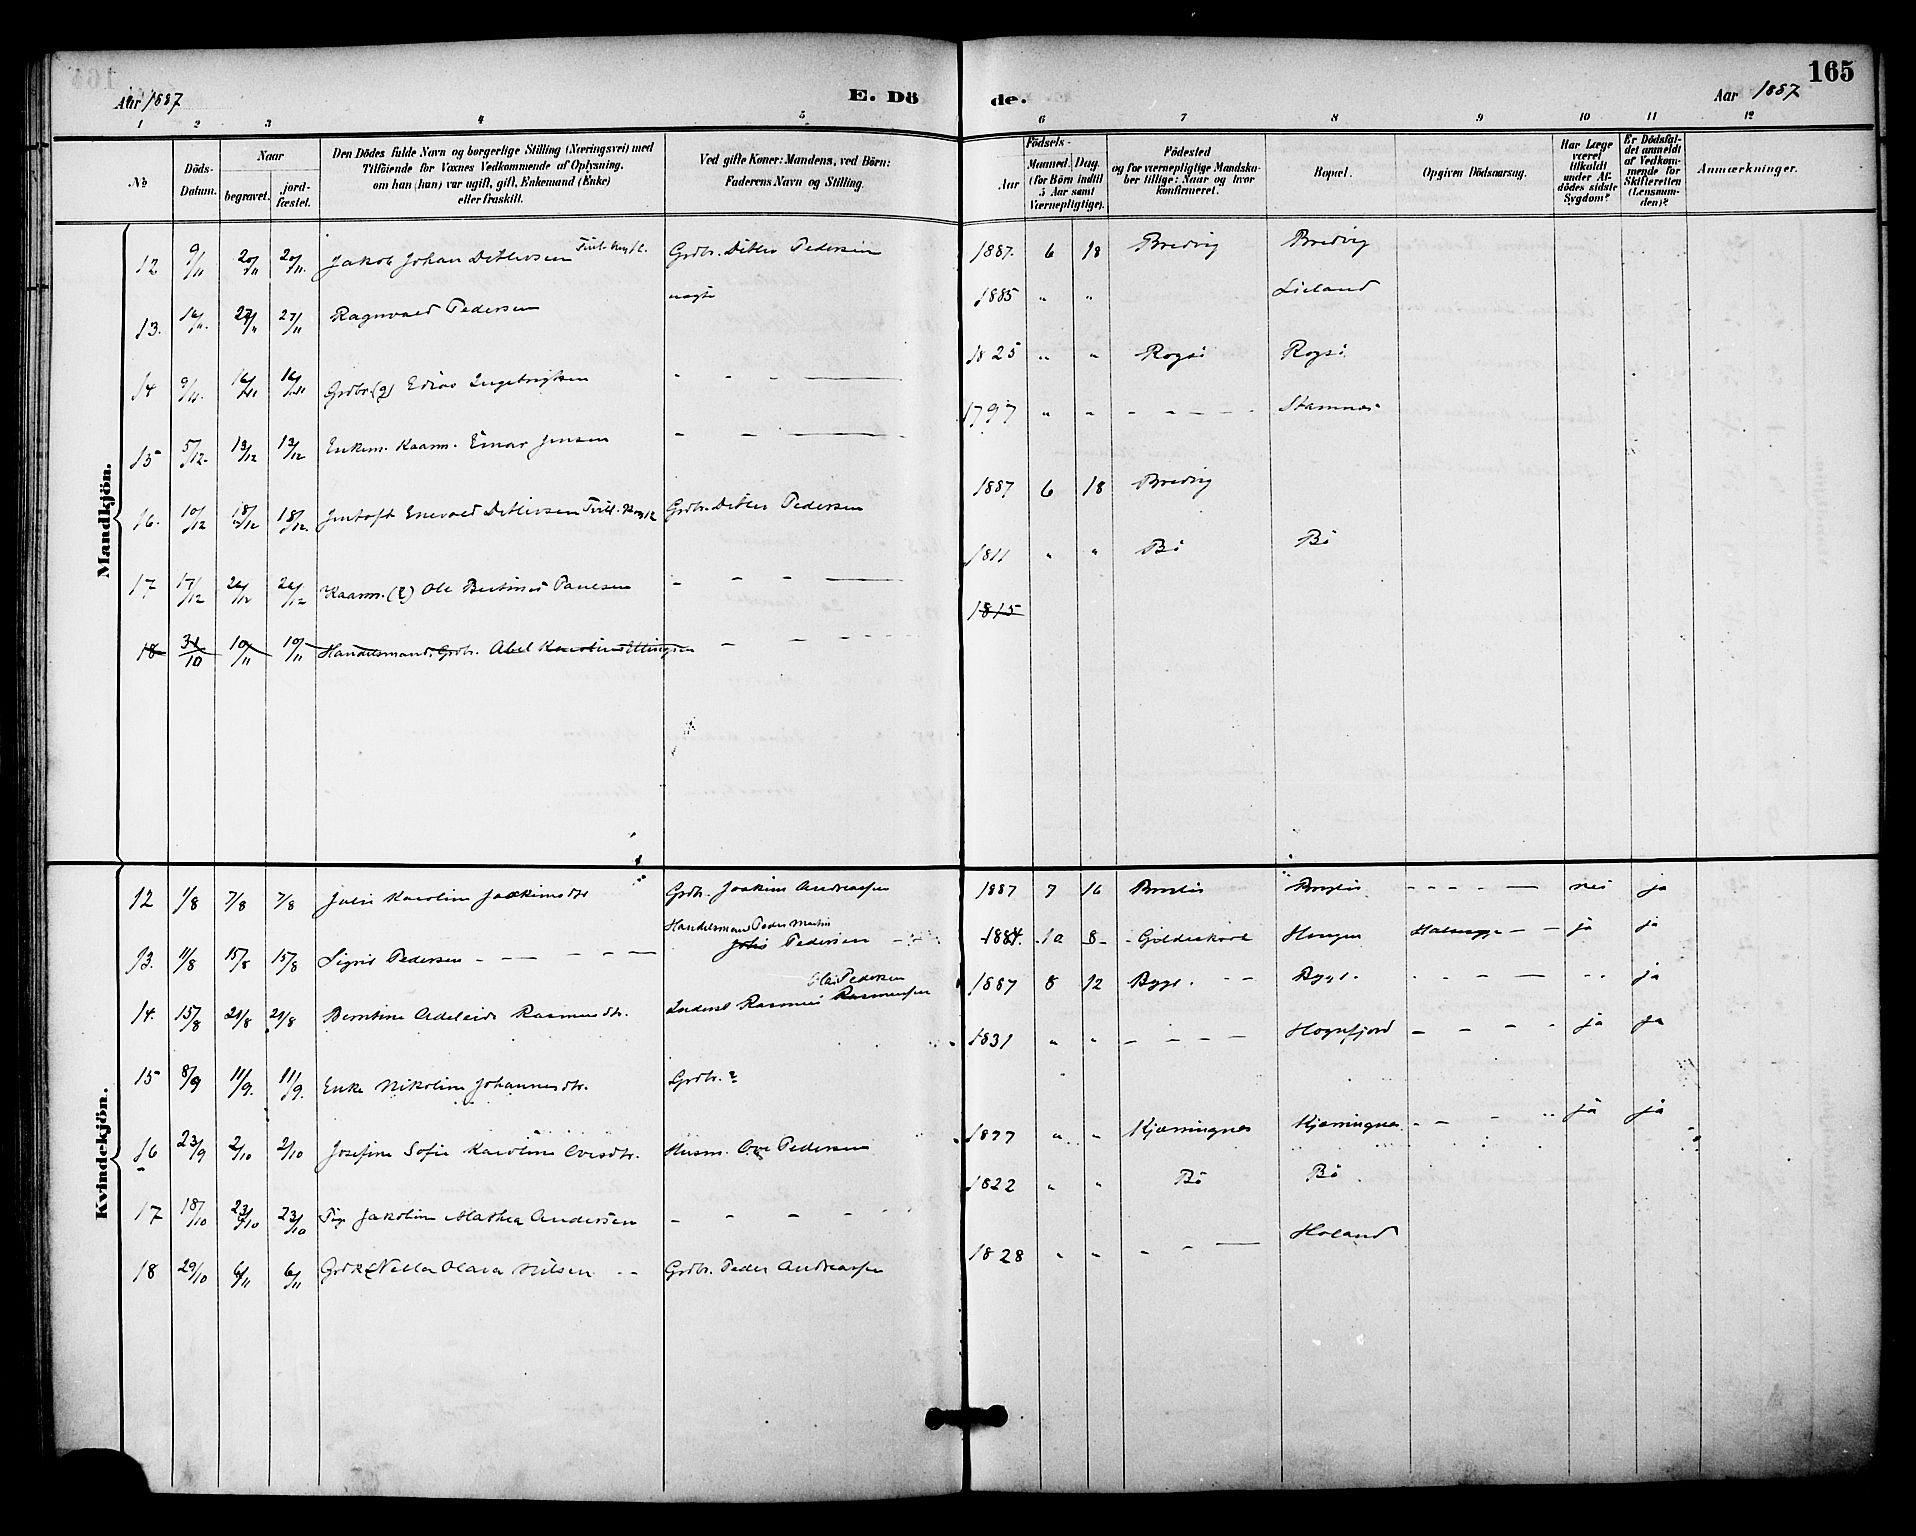 165
Aar 1887
E. Dö
de.
Aar 1887
1 2 3 4 5 6 7 8 9 10 11 12
No
Döds-
Datum.
Naar
begravet.
jord-
fæstet.
Den Dödes fulde Navn og borgerlige Stilling (Næringsvei) med
Tilföiende for Voxnes Vedkommende af Oplysning,
om han (hun) var ugift, gift, Enkemand (Enke)
eller fraskilt.
Ved gifte Koner: Mandens, ved Börn:
Faderens Navn og Stilling.
Födsels-
Aar
Maaned.
Dag.
(for Börn indtil
5 Aar samt
Værnepligtige).
Födested
og for værnepligtige Mandska-
ber tillige: Naar og hvor
konfirmeret.
Bopæl.
Opgiven Dödsaarsag.
Har Læge
været
tilkaldt
under Af-
dödes sidste
Sygdom?
Er Dödsfal-
det anmeldt
af Vedkom-
mende for
Skifteretten
(Lensman-
den)?
Anmærkninger.
Mandkjön.
12 9/11 20/11 20/11 Jakob Johan Detlevsen Grdbr. Detlev Pedersen 1887. 6 18 Bredvig Bredvig
13. 16/11. 27/11 27/11 Ragnvald Pedersen uægte 1885 " " Lieland
14 9/11. 16/11 16/11 Grdbr. (g) Edias Ingebrigtsen - - - — 1825 " " Rogsö Rogsö
15 5/12. 13/12 13/12 Enkem. Kaarm. Einar Jensen - - — 1797 " " - - - - Stamnes
16. 10/12 18/12 18/12. Enevald Detlevsen Grdbr. Detlev Pedersen 1887 6 18 Bredvig
17 17/12 26/12 26/12 Kaarm. (g) Ole Paulsen - - - — 1811 " " Bö Bö
18 31/10 10/11 10/11 Handelsmand, Grdbr. Abel Ellingsen - - - - 1815
Kvindekjön.
12 1/8 7/8 7/8 Julie Karoline Joakimsdtr Grdbr. Joakim Andreassen 1887 7 16 - - - - — nei ja
13. 11/8 15/8 15/8 Sigrid Pedersen - - - - — Handelsmand Peder Martin Pedersen 1884. 10 8 Gildeskaal - - ja ja
14. 15/8 21/8 21/8 Berntine Adelaide Rasmusdtr. Inderst Rasmus Rasmussen Ole Pedersen 1887 8 12 - - - - - — - - ja
15 8/9 11/9. 11/9. Enke Nikoline Johannesdtr. Grdbr. ? 1831 " " - - - - Hognfjord - - - - ja ja
16 23/9 2/10 2/10 Josefine Sofie Karoline Ovesdtr. Husm. Ove Pedersen 1877 " " Kjærringnes Kjærringnes - - - ja ja
17 18/10 23/10 23/10 Jakoline Mathea Andersen - - - - 1822 " " Bö Bö
18 29/10 6/11 6/11 Olava Nilsen - - Grdbr. Peder Andreassen 1828 " " - - — Holand